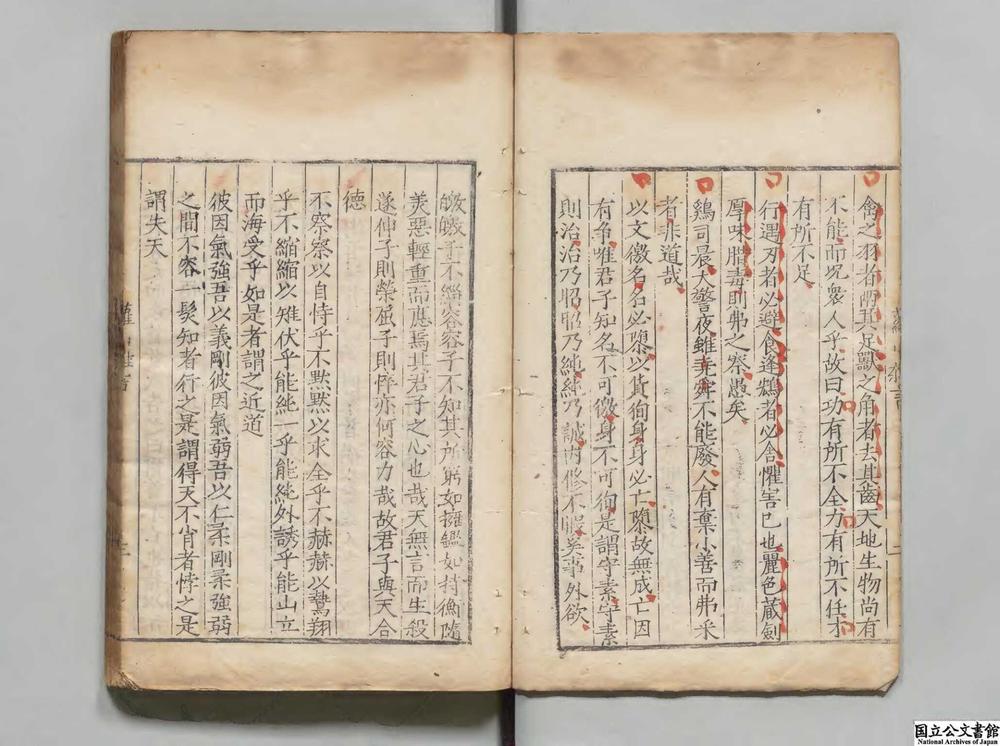 禽之羽者兩其足獸之角者去其齒天地生物尚有
不能而况衆人乎故曰功有所不全力有所不任才
有所不足
行遇刃者必避食逢鴆者必舍懼害己也麗色藏劍
厚味腊毒則弗之察愚矣
鷄司晨犬警夜雖堯舜不能廢人有棄小善而弗采
者非道哉
以文徼名名必隳以貨徇身身必亡隳故無成亡因
有争唯君子知名不可徼身不可徇是謂守素守素
則治治乃昭昭乃純純乃誠内修不暇奚事外欲
皦皦乎不緇容容乎不知其所窮如擁鑑如持衡隨
美惡輕重而應焉其君子之心也哉天無言而生殺
遂伸予則榮屈予則悴亦何容力哉故君子與天合
德
不察察以自恃乎不黙黙以求全乎不赫赫以驁翔
乎不縮縮以雉伏乎能純一乎能絶外誘乎能山立
而海受乎如是者謂之近道
彼因氣強吾以義剛彼因氣弱吾以仁柔剛柔強弱
之間不容一髮知者行之是謂得天不肖者悖之是
謂失天
三
国立公文書館
National Archives of Japan